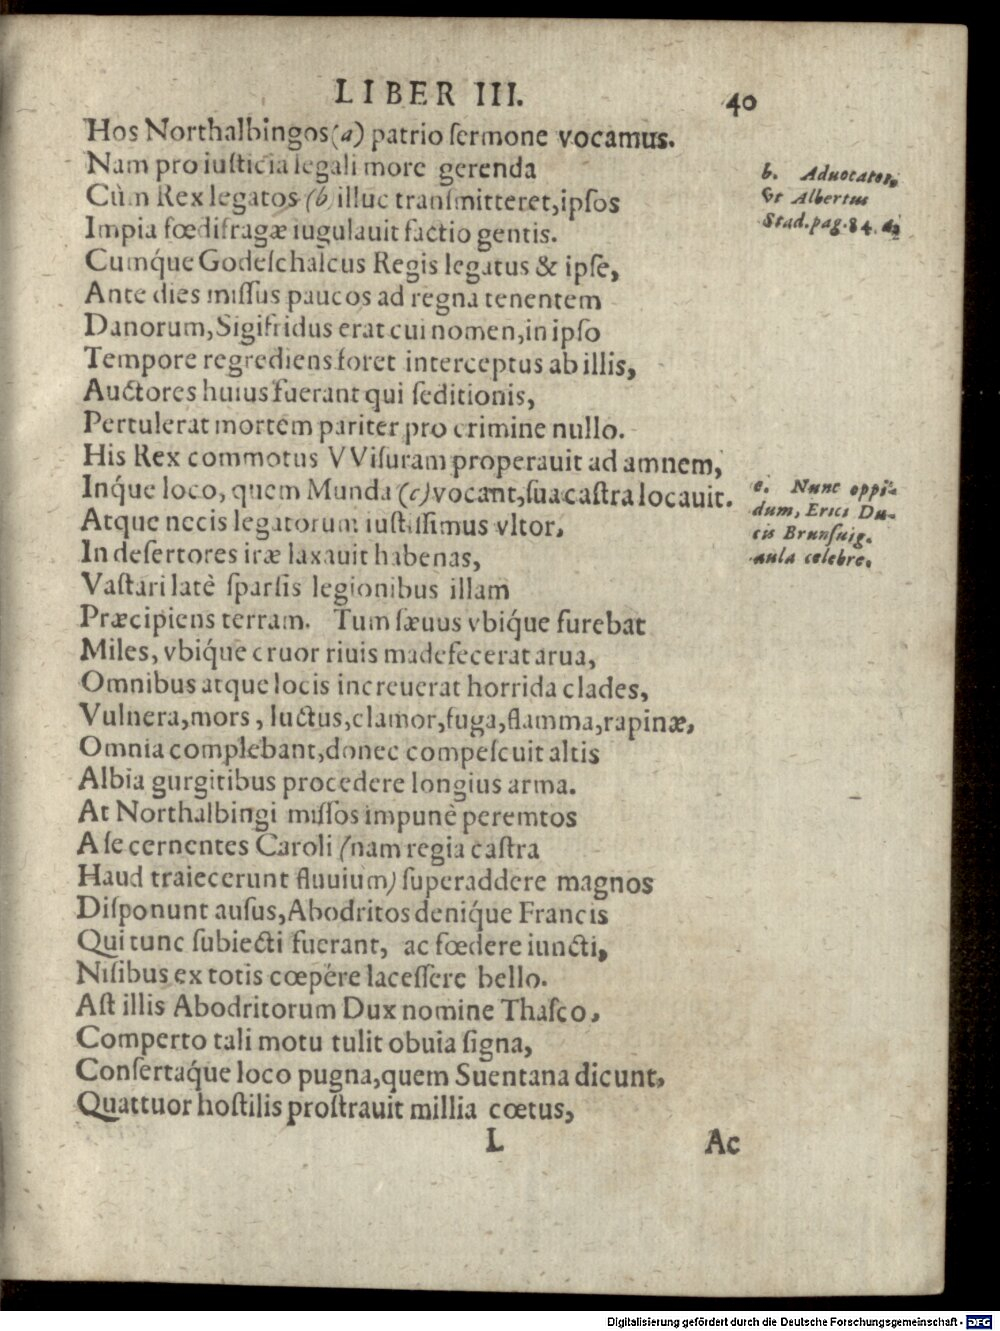 LIBER III.
40
Hos Northalbingos (a) patrio ſermone vocamus.
Nam pro iuſticia legali more gerenda
Cùm Rex legatos (b) illuc tranſmitteret, ipſos
Impia fœdifragæ iugulauit factio gentis.
Cumq́ue Godeſchalcus Regis legatus & ipſe,
Ante dies miſſus paucos ad regna tenentem
Danorum, Sigifridus erat cui nomen, in ipſo
Tempore regrediens foret interceptus ab illis,
Auctores huius fuerant qui ſeditionis,
Pertulerat mortem pariter pro crimine nullo.
His Rex commotus VViſuram properauit ad amnem,
Inq́ue loco, quem Munda (c) vocant, ſua caſtra locauit.
Atque necis legatorum iuſtiſſimus vltor,
In deſertores iræ laxauit habenas,
Vaſtari latè ſparſis legionibus illam
Præcipiens terram. Tum ſæuus vbiq́ue furebat
Miles, vbiq́ue cruor riuis madefecerat arua,
Omnibus atque locis increuerat horrida clades,
Vulnera, mors, luctus, clamor, fuga, flamma, rapinæ,
Omnia complebant, donec compeſcuit altis
Albia gurgitibus procedere longius arma.
At Northalbingi miſſos impunè peremtos
A ſe cernentes Caroli (nam regia caſtra
Haud traiecerunt fluuium) ſuperaddere magnos
Diſponunt auſus, Abodritos deniq́ue Francis
Qui tunc ſubiecti fuerant, ac fœdere iuncti,
Niſibus ex totis cœpére laceſſere bello.
Aſt illis Abodritorum Dux nomine Thaſco,
Comperto tali motu tulit obuia ſigna,
Conſertaq́ue loco pugna, quem Suentana dicunt,
Quattuor hoſtilis proſtrauit millia cœtus,
L
Ac
b. Aduocator,
Vt Albertus
Stad. pag. 84.
c. Nunc oppi-
dum, Erici Du-
cis Brunſuig.
aula celebre.
Digitalisierung gefördert durch die Deutsche Forschungsgemeinschaft - DFG